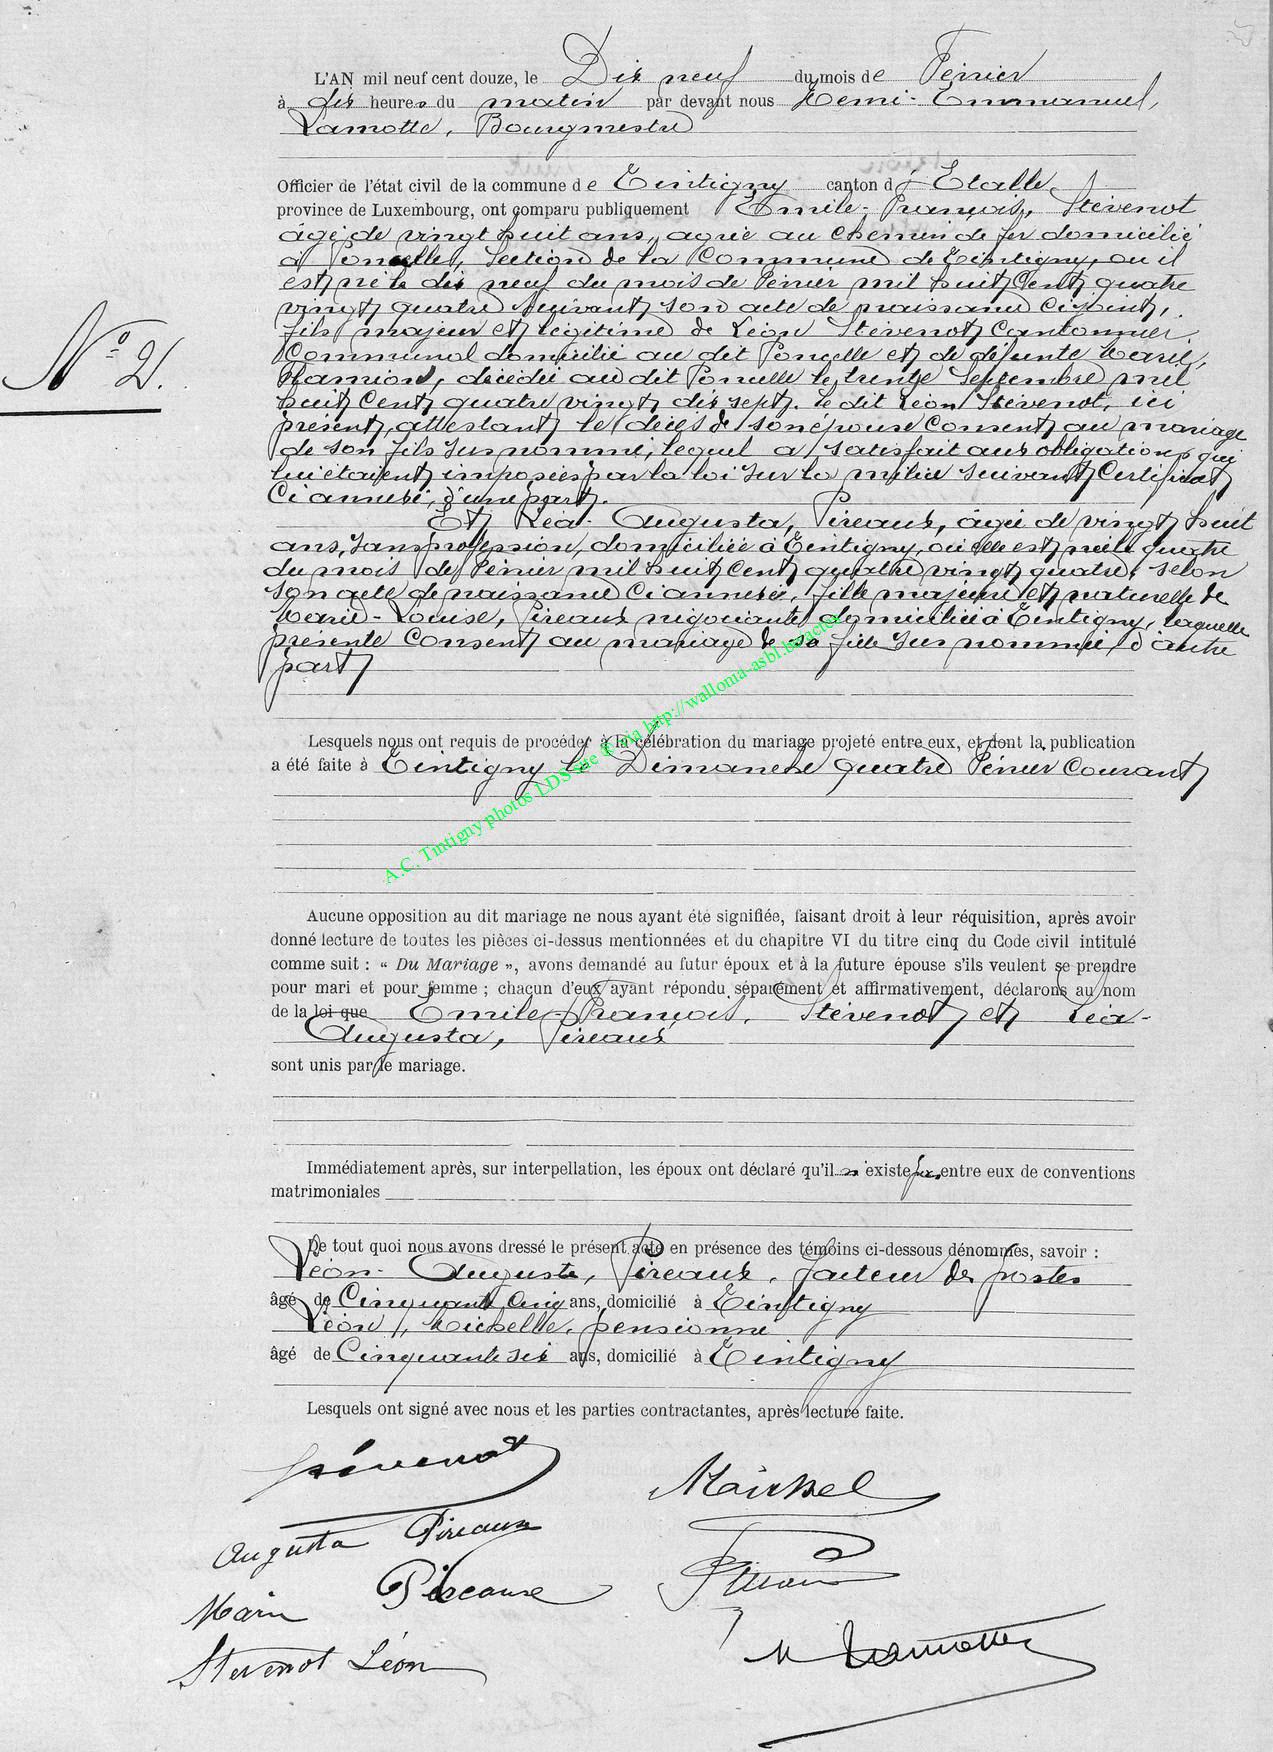 L'AN mil neuf cent douze, le Dix neuf du mois de Février
à dix heures du matin par devant nous Henri-Emmanuel,
Lamotte, Bourgmestre
Officier de l'état civil de la commune de Tintigny canton d' Etalle,
province de Luxembourg, ont comparu publiquement Emile-François, Stévenot
âgé de vingt huit ans, agréé au chemin de fer domicilié
à Poncelle, section de la Commune de Tintigny, où il
est né le dix neuf du mois de Février mil huit Cent quatre
vingt quatre suivant son acte de naissance ci joint,
fils majeur et légitime de Léon Stévenot Cantonnier
Communal domicilié au dit Poncelle et de défunte Marie,
Hamion, décédée au dit Poncelle le trente Septembre mil
huit Cent quatre vingt dix sept. le dit Léon Stévenot, ici
présent, attestant le décès de son épouse Consent au mariage
de son fils sus nommé, lequel a satisfait aux obligations qui
lui étaient imposées par la loi sur la milice suivant Certificat
Ci annexé, d'une part.
Et Léa-Augusta, Pireaux, âgée de vingt huit
ans, sans profession, domiciliée à Tintigny, où elle est née le quatre
du mois de Février mil huit Cent quatre vingt quatre, selon
son acte de naissance Ci annexé, fille majeure et naturelle de
Marie-Louise, Pireaux négociante domiciliée à Tintigny, laquelle
présente Consent au mariage de sa fille sus nommée, d'autre
part
N° 2.
Lesquels nous ont requis de procéder à la célébration du mariage projeté entre eux, et dont la publication
a été faite à Tintigny le Dimanche quatre Février Courant
A.C. Tintigny photos LDS site & via http://wallonia-asbl.be/actes
Aucune opposition au dit mariage ne nous ayant été signifiée, faisant droit à leur réquisition, après avoir
donné lecture de toutes les pièces ci-dessus mentionnées et du chapitre VI du titre cinq du Code civil intitulé
comme suit : « Du Mariage », avons demandé au futur époux et à la future épouse s'ils veulent se prendre
pour mari et pour femme ; chacun d'eux ayant répondu séparément et affirmativement, déclarons au nom
de la loi que Emile-François, Stévenot et Léa-
Augusta, Pireaux
sont unis par le mariage.
Immédiatement après, sur interpellation, les époux ont déclaré qu'il n'existe pas entre eux de conventions
matrimoniales
De tout quoi nous avons dressé le présent acte en présence des témoins ci-dessous dénommés, savoir :
Léon-Auguste, Pireaux, facteur des postes
âgé de Cinquante Cinq ans, domicilié à Tintigny
Léon, pensionné
âgé de Cinquante six ans, domicilié à Tintigny
Lesquels ont signé avec nous et les parties contractantes, après lecture faite.
Stévenot
Augusta Pireaux
Marie Pireaux
Stevenot Léon
H Lamotte